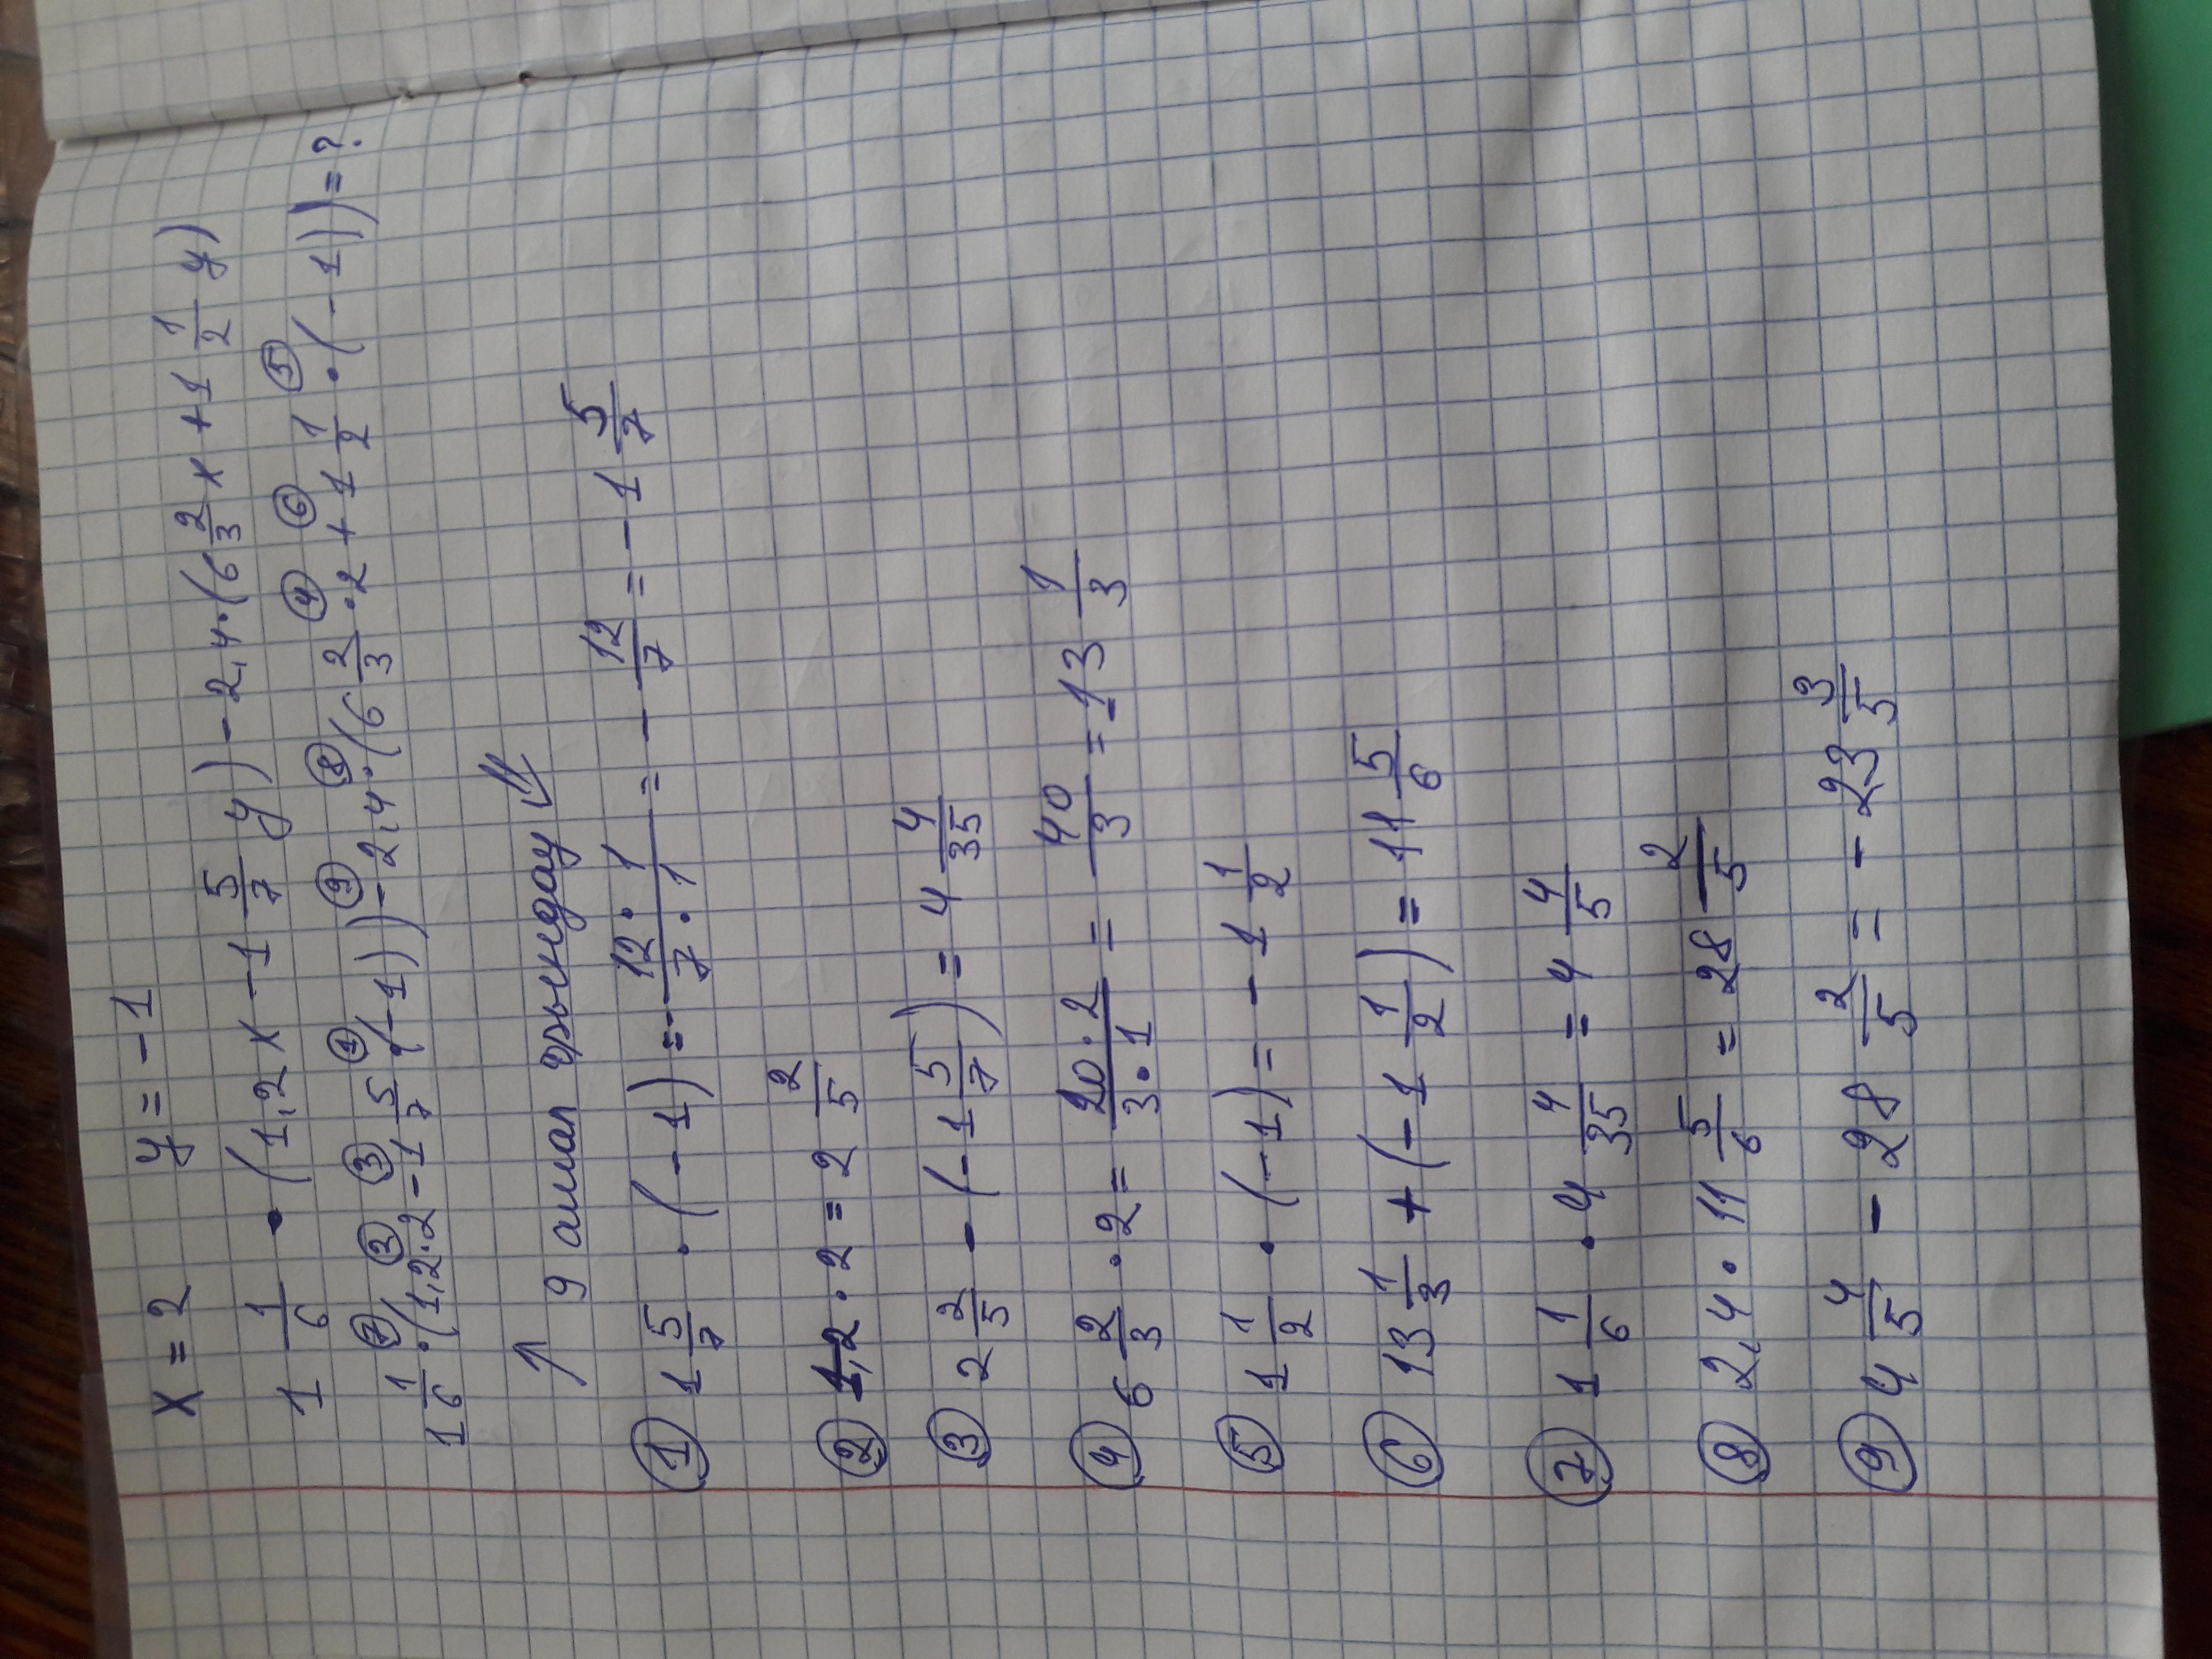 x = 2   y = -1
1 1/6 • (1,2x - 1 5/7 y) - 2,4 • (6 2/3 x + 1 1/2 y)
⑦ ② ③ ① ⑨ ⑧ ④ ⑥ ⑤
1 1/6 • (1,2 • 2 - 1 5/7 • (-1)) - 2,4 • (6 2/3 • 2 + 1 1/2 • (-1)) = ?
↑ 9 амал орындау ⇓
① 1 5/7 • (-1) = - 12 • 1 / 7 • 1 = - 12/7 = - 1 5/7
② 1,2 • 2 = 2 2/5
③ 2 2/5 - (-1 5/7) = 4 4/35
④ 6 2/3 • 2 = 20 • 2 / 3 • 1 = 40/3 = 13 1/3
⑤ 1 1/2 • (-1) = - 1 1/2
⑥ 13 1/3 + (-1 1/2) = 11 5/6
⑦ 1 1/6 • 4 4/35 = 4 4/5
⑧ 2,4 • 11 5/6 = 28 2/5
⑨ 4 4/5 - 28 2/5 = - 23 3/5